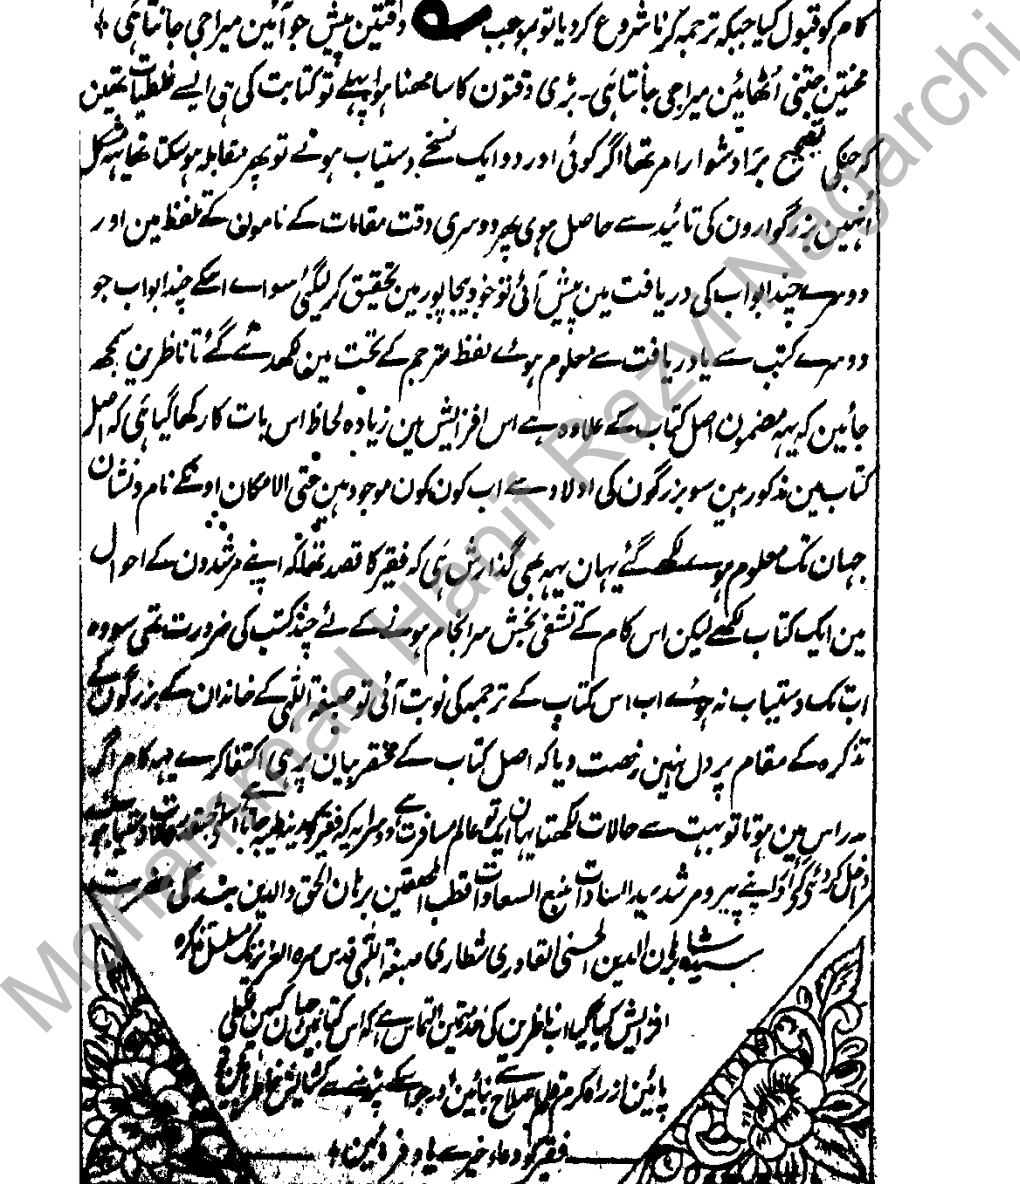 کام کو قبول کیا جبکہ ترجمہ کرنا شروع کردیا تو بموجب دقتین پیش جو آئین میرا جی جانتا ہی
محنتین جتنی اُٹھائین میرا جی جانتا ہی۔ بڑی دقتون کا سامھنا ہوا پہلے تو کتابت کی ہی ایسے غلطیات تھین
کہ جنکی تصحیح بڑا دشوار امر تھا اگر کوئی اور دو ایک نسخے دستیاب ہوتے تو پھر مقابلہ ہو سکتا تھا یہہ مشکل
انہین بزرگوارون کی تائید سے حاصل ہوی پھر دوسری دقت مقامات کے نامون کے تلفظ مین اور
دوسرے چند ابواب کی دریافت مین پیش آئی تو خود بیجاپور مین تحقیق کر لیگئی سواے اسکے چند ابواب جو
دوسرے کتب سے یا دریافت سے معلوم ہوئے لفظ مترجم کے تحت مین لکھدئے گئے تا ناظرین سمجھ
جائین کہ یہہ مضمون اصل کتاب کے علاوہ ہے اس افزایش مین زیادہ لحاظ اس بات کا رکھا گیا ہی کہ اصل
کتاب مین مذکور ہین سو بزرگون کی اولاد سے اب کون کون موجود ہین حتی الامکان اونکے نام و نشان
جہان تک معلوم ہوے لکھے گئے یہان یہہ بھی گذارش ہی کہ فقیر کا قصد تھا کہ اپنے مرشدون کے احوال
مین ایک کتاب لکھے لیکن اس کام کے تشفی بخش سرانجام ہونے کے لئے چند کتب کی ضرورت تھی سو وہ
اب تک دستیاب نہ ہوئے اب اس کتاب کے ترجمہ کی نوبت آئی تو صبغۃ اللٰہی کے خاندان کے بزرگون کے
تذکرہ کے مقام پر دل نہین رخصت دیا کہ اصل کتاب کے مختصر بیان پر ہی اکتفا کرے یہہ کام اگر
مدراس مین ہوتا تو بہت سے حالات لکھتا یہان ایک تو عالم مسافرت ہے دوسرا یہ کہ فقیر کو مدینہ طیبہ جانا
داخل کردئی گئی اور اپنے پیر و مرشد سید السادات منبع السعادات قطب المحققین برہان الحق والدین سیدی حضرت
سید شاہ برہان الدین الحسنی القادری الشطاری صبغۃ اللٰہی قدس سرہ العزیز تک مسلسل تذکرہ
افزایش کیا گیا اب ناظرین کی خدمتمین التماس ہے کہ اس کتابمین جہان کہین غلطی
پائین از راہ کرم قلم اصلاح بنائین اور جو اسکے پڑہنے سے
فقیر کو دعاء خیر سے یاد فرمائین
Mohammad Hanif Razvi Nagarchi